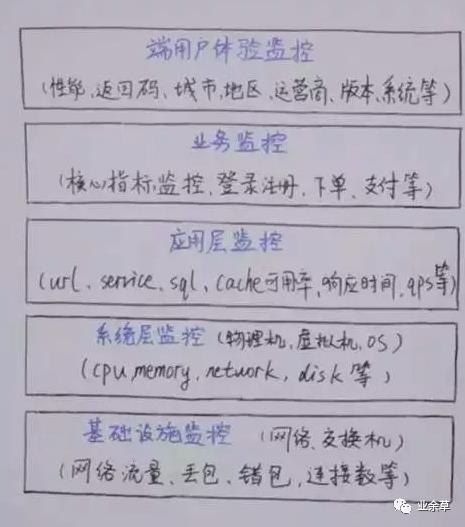 端用户体验监控
(性能、返回码、城市、地区、运营商、版本、系统等)
业务监控
(核心指标监控、登录注册、下单、支付等)
应用层监控
(url、service、sql、cache可用率、响应时间、qps等)
系统层监控 (物理机、虚拟机、OS)
(cpu,memory、network, disk 等)
基础设施监控 (网络、交换机)
(网络流量、丢包、错包、连接数等)
业余草